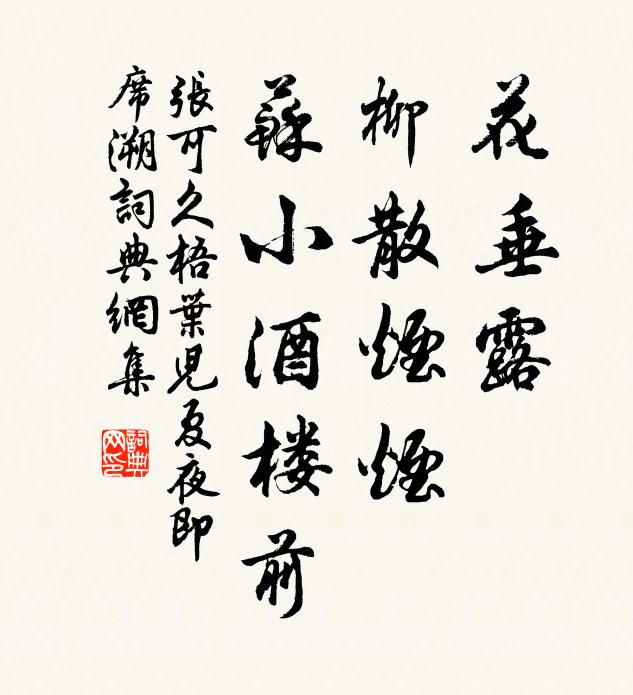 花垂露
柳散煙煙
蘇小酒楼前
張可久梧葉児夏夜即
席溯詞典網集
詞典网印